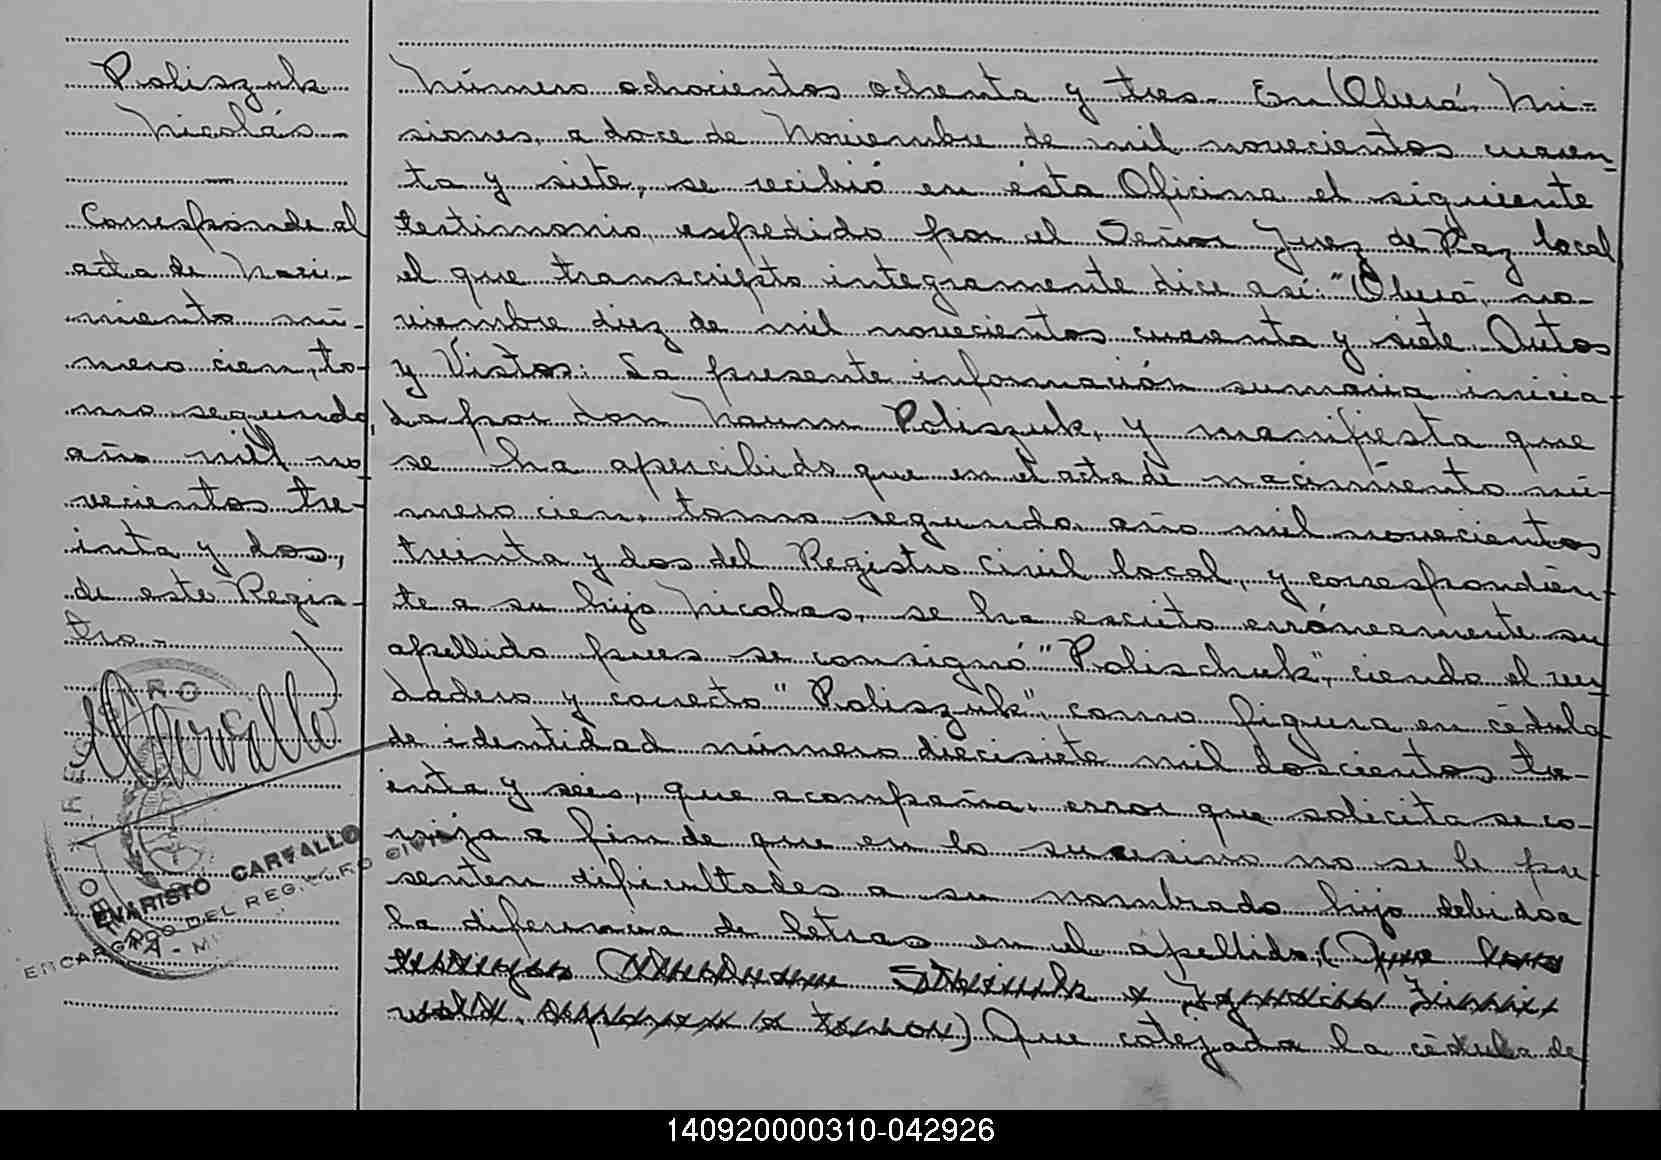 Poliszuk
Nicolás
Corresponde al
acta de naci-
miento nú-
mero cien, to-
mo segundo,
año mil no
vecientos tre-
inta y dos,
de este Regis-
tro.-
EVARISTO CARVALLO
ENCARGADO DEL REGISTRO CIVIL
Número ochocientos ochenta y tres. En Oberá, Mi-
siones, a doce de Noviembre de mil novecientos cuaren-
ta y siete, se recibió en ésta Oficina el siguiente
testimonio, expedido por el Señor Juez de Paz local
el que transcripto integramente dice así: "Oberá, no-
viembre diez de mil novecientos cuarenta y siete. Autos
y Vistos: La presente información sumaria inicia-
da por don Naum Poliszuk, y manifiesta que
se ha apercibido que en el acta de nacimiento nú-
mero cien, tomo segundo año mil novecientos
treinta y dos del Registro Civil local, y correspondien-
te a su hijo Nicolas, se ha escrito erróneamente su
apellido pues se consignó "Polischuk", ciendo el ver-
dadero y correcto "Poliszuk", como figura en cédula
de identidad número diecisiete mil doscientos tre-
inta y seis, que acompaña, error que solicita se co-
rrija a fin de que en lo sucesivo no se le pre
senten dificultades a su nombrado hijo debido a
la diferencia de letras en el apellido, (Que los
testigos
) Que cotejada la cédula de
140920000310-042926